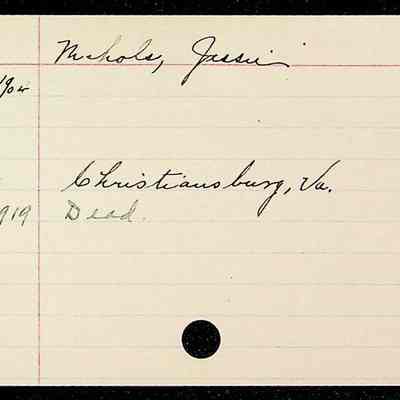 Nichols, Jessie
Christiansburg, Va.
919 Dead.